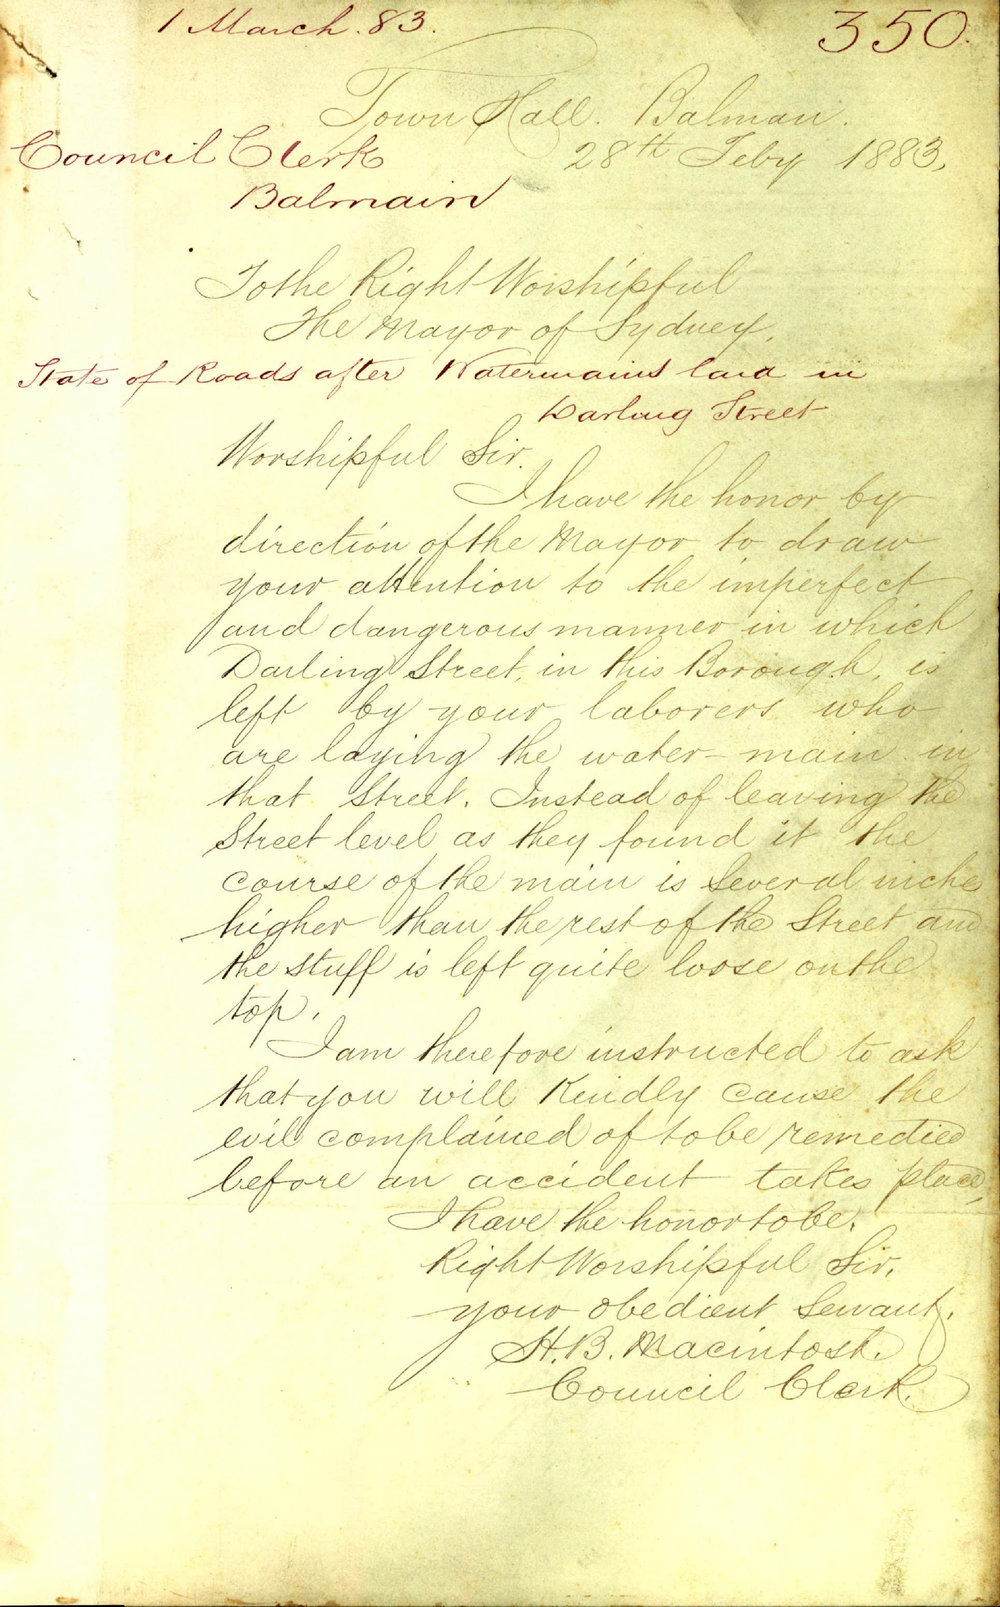 1 March. 83.
350.
Town Hall. Balmain.
Council Clerk
28th Feby 1883.
Balmain
To the Right Worshipful
The Mayor of Sydney.
State of Roads after Watermains laid in
Darling Street
Worshipful Sir.
I have the honor by
direction of the Mayor to draw
your attention to the imperfect
and dangerous manner in which
Darling Street, in this Borough, is
left by your laborers who
are laying the water-main in
that Street. Instead of leaving the
Street level as they found it the
course of the main is several inches
higher than the rest of the Street and
the stuff is left quite loose on the
top.
I am therefore instructed to ask
that you will kindly cause the
evil complained of to be remedied
before an accident takes place,
I have the honor to be.
Right Worshipful Sir,
your obedient Servant,
H. B. Macintosh.
Council Clerk.